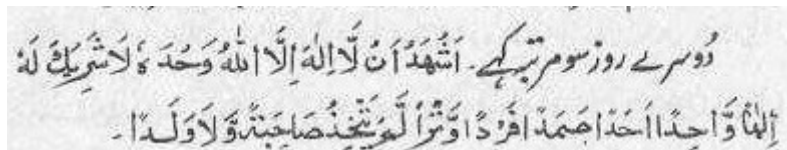 دُوسرے روز سو مرتبہ کہے۔ اَشْھَدُ اَنْ لَّا اِلٰہَ اِلَّا اللّٰہُ وَحْدَہٗ لَاشَرِیْکَ لَہٗ
اِلٰھًا وَّاحِدًا اَحَدًا صَمَدًا فَرْدًا وَّتْرًا لَّمْ یَتَّخِذْ صَاحِبَۃً وَّلَا وَلَدًا۔